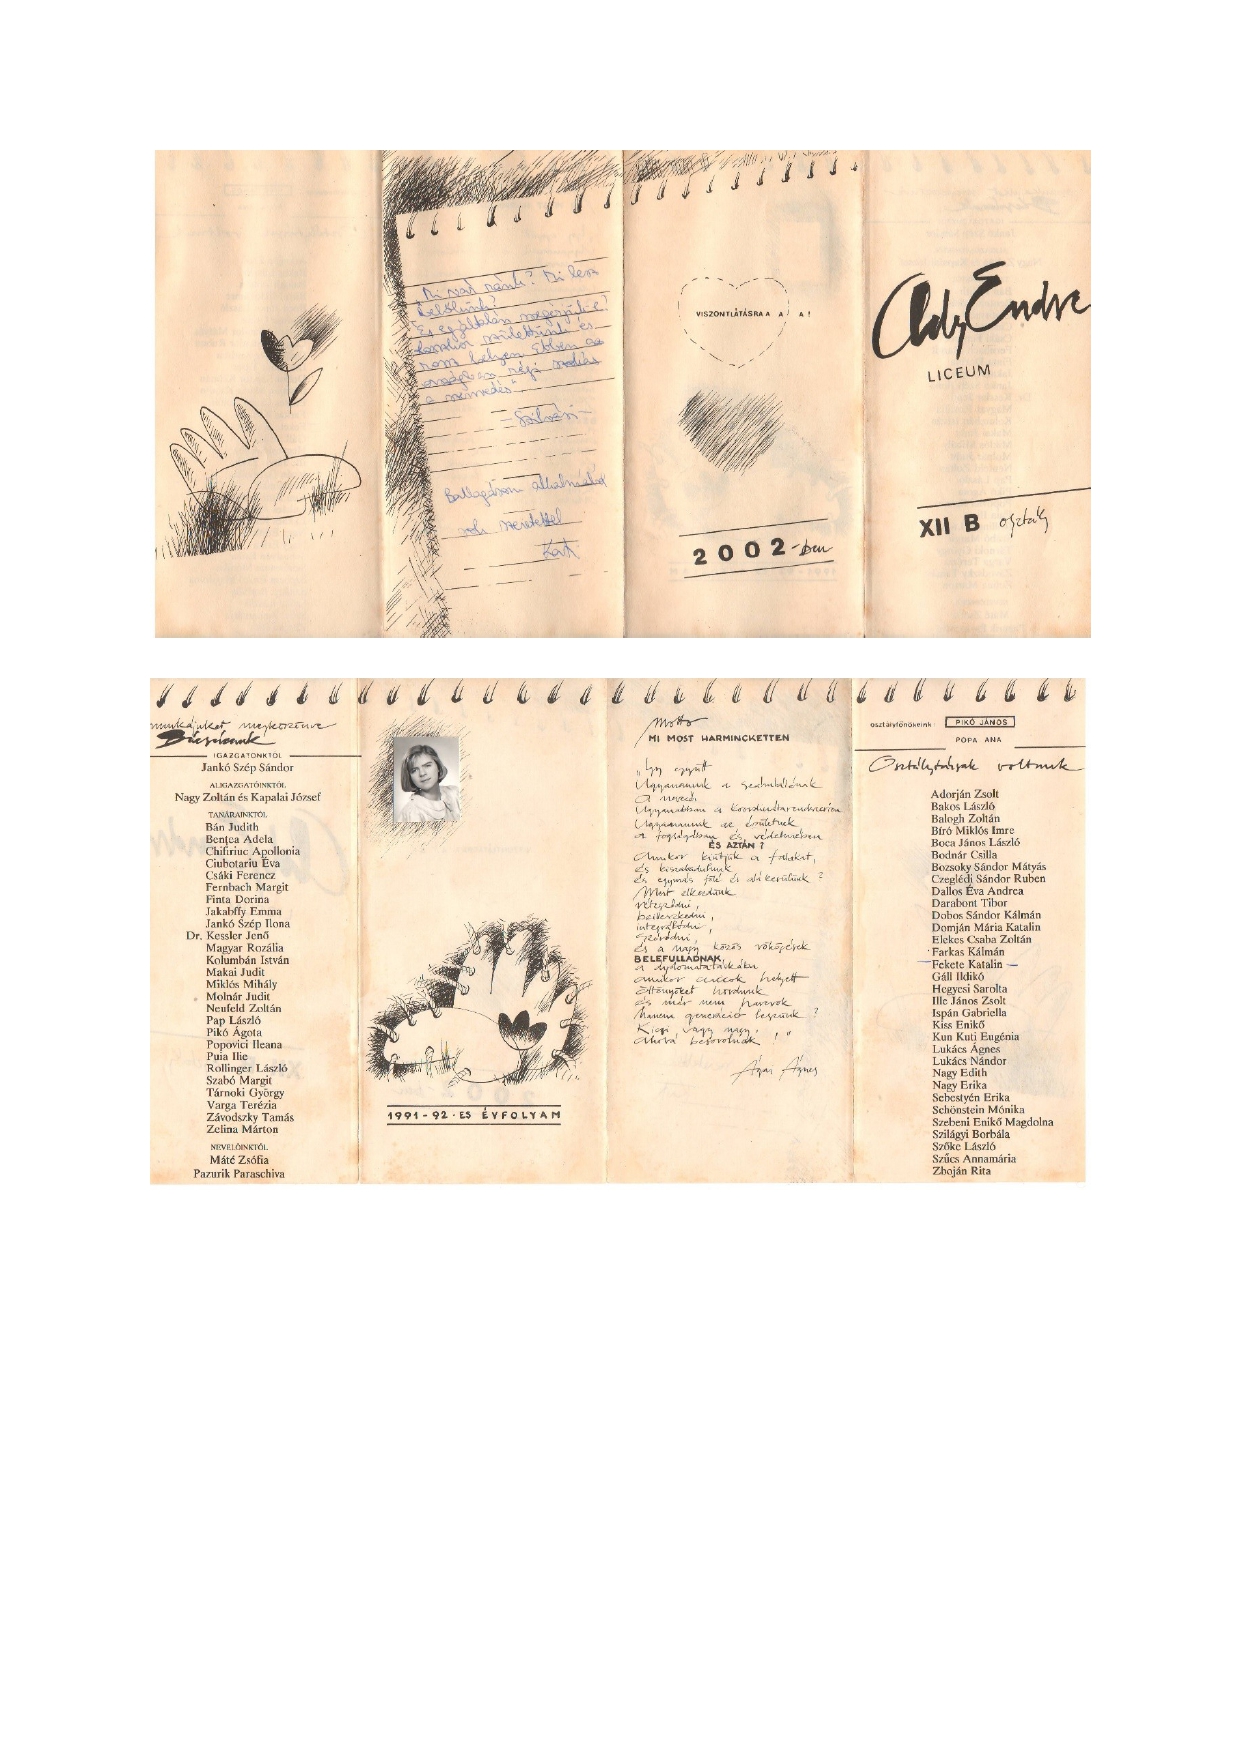 „Mi vár ránk? Mi lesz
belőlünk?
És egyáltalán megérjük-e?
születtünk és
rom helyen. Ebben az
országban régi
a szenvedés"
Ballagásom alkalmából
sok szeretettel
Kati
VISZONTLÁTÁSRA A A A !
2002-ben
Ady Endre
LICEUM
XII B osztály
munkájukat megköszönve
Búcsúzunk
IGAZGATÓNKTÓL
Jankó Szép Sándor
ALIGAZGATÓINKTÓL
Nagy Zoltán és Kapalai József
TANÁRAINKTÓL
Bán Judith
Bențea Adela
Chifiriuc Apollonia
Ciubotariu Éva
Csáki Ferencz
Fernbach Margit
Finta Dorina
Jakabffy Emma
Jankó Szép Ilona
Dr. Kessler Jenő
Magyar Rozália
Kolumbán István
Makai Judit
Miklós Mihály
Molnár Judit
Neufeld Zoltán
Pap László
Pikó Ágota
Popovici Ileana
Puia Ilie
Rollinger László
Szabó Margit
Tárnoki György
Varga Terézia
Závodszky Tamás
Zelina Márton
NEVELŐINKTŐL
Máté Zsófia
Pazurik Paraschiva
1991-92-ES ÉVFOLYAM
Motto
MI MOST HARMINCKETTEN
„Így együtt
Ugyanannak a szimbólumnak
a nevezői
Ugyanabban a koordinátarendszerben
Ugyanannak az épületnek
a fogságában és védelmében
ÉS AZTÁN ?
Amikor kiütjük a falakat,
és kiszabadulunk
és egymás fölé és alá kerülünk ?
Mert elkezdünk
rétegződni,
beilleszkedni,
integrálódni,
és a nagy közös
BELEFULLADNAK,
a diplomatatáskába
amikor cuccok helyett
öltönyöket hordunk
és már nem haverok
hanem generáció leszünk ?
Kicsi, vagy nagy,
ahová besorolnak !"
Ágai Ágnes
osztályfőnökeink: PIKÓ JÁNOS
POPA ANA
Osztálytársak voltunk
Adorján Zsolt
Bakos László
Balogh Zoltán
Bíró Miklós Imre
Boca János László
Bodnár Csilla
Bozsoky Sándor Mátyás
Czeglédi Sándor Ruben
Dallos Éva Andrea
Darabont Tibor
Dobos Sándor Kálmán
Domján Mária Katalin
Elekes Csaba Zoltán
Farkas Kálmán
Fekete Katalin
Gáll Ildikó
Hegyesi Sarolta
Ille János Zsolt
Ispán Gabriella
Kiss Enikő
Kun Kuti Eugénia
Lukács Ágnes
Lukács Nándor
Nagy Edith
Nagy Erika
Sebestyén Erika
Schönstein Mónika
Szebeni Enikő Magdolna
Szilágyi Borbála
Szőke László
Szűcs Annamária
Zboján Rita